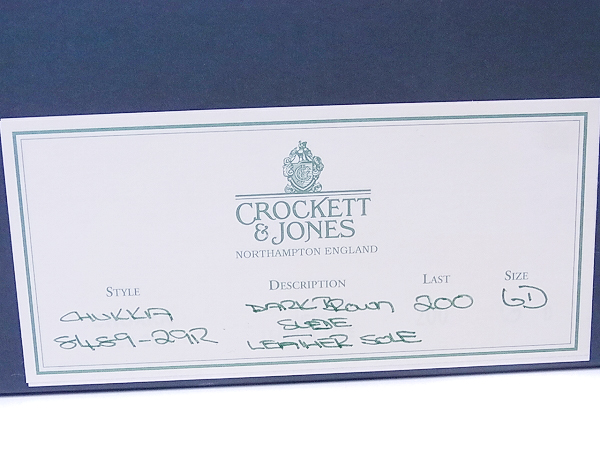 CROCKETT
& JONES
NORTHAMPTON ENGLAND
STYLE DESCRIPTION LAST SIZE
CHUKKA DARK BROWN 200 6D
8489-29R SUEDE
LEATHER SOLE